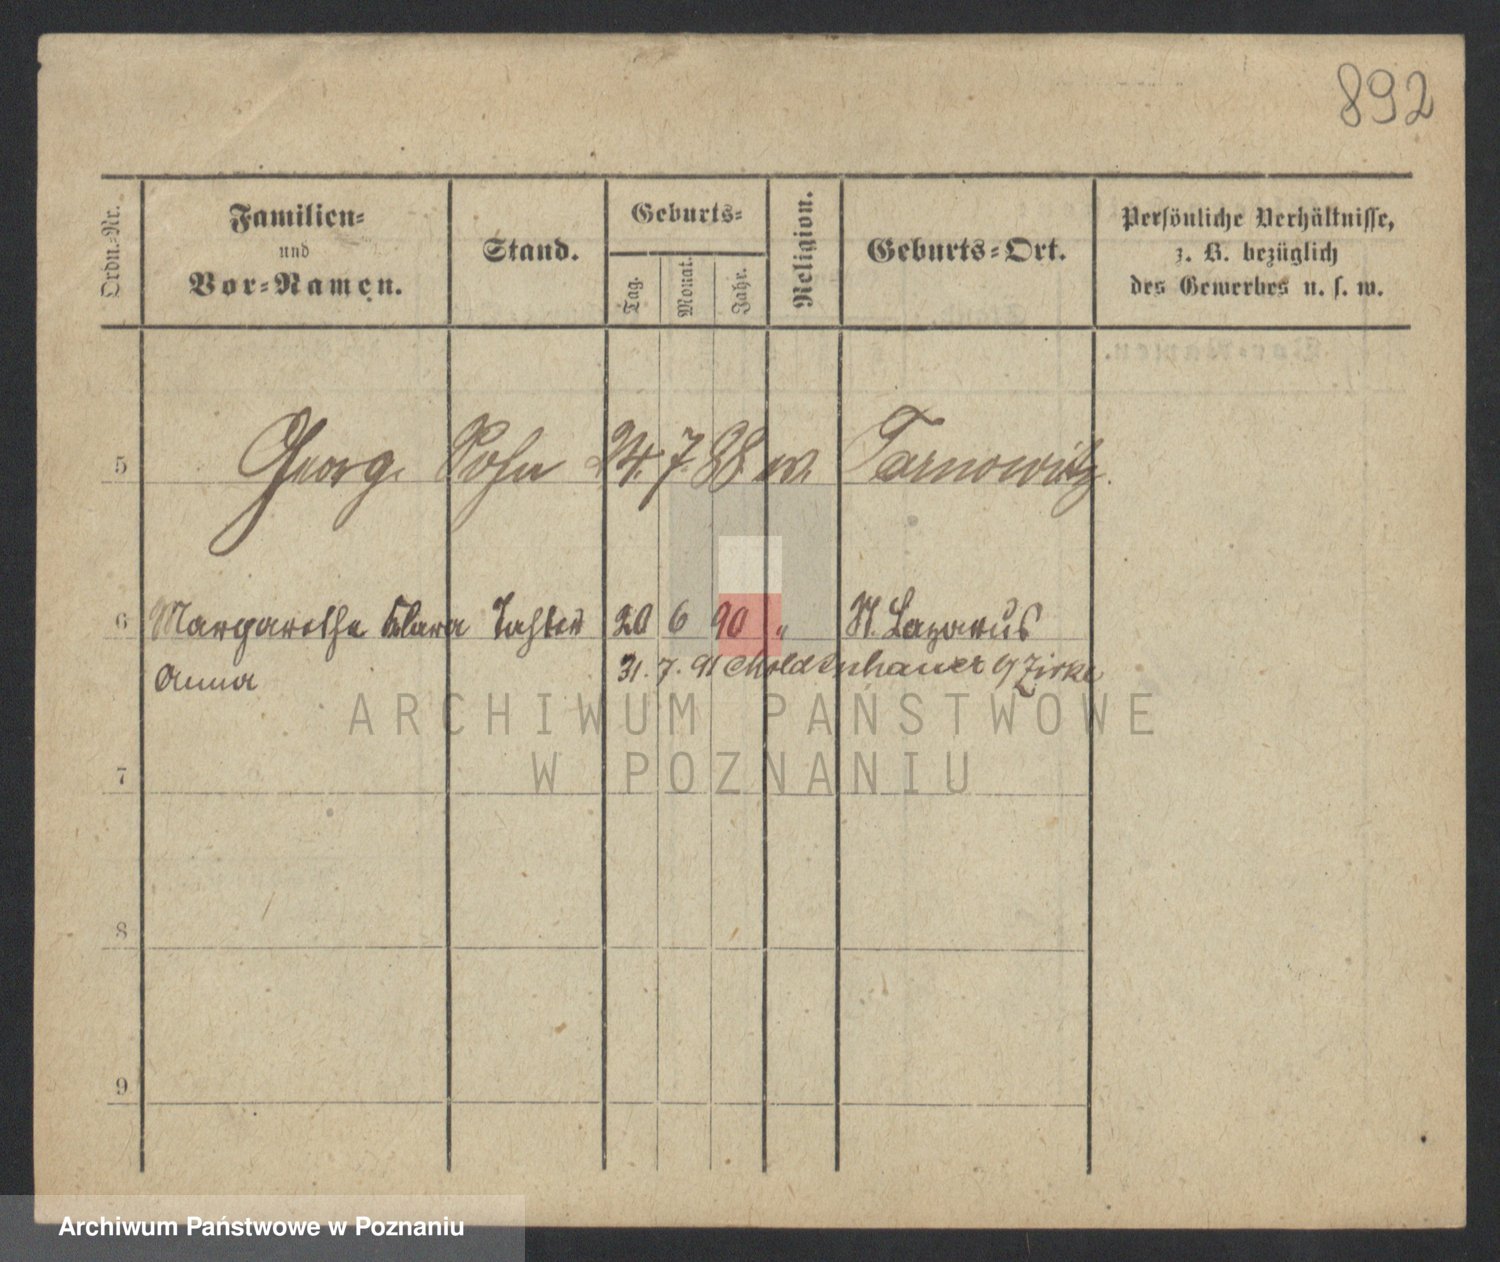 892
Ordn.-Nr.
Familien-
und
Vor-Namen.
Stand.
Geburts-
Tag.
Monat.
Jahr.
Religion.
Geburts-Ort.
Persönliche Verhältnisse,
z. B. bezüglich
des Gewerbes u. s. w.
5 Georg. Sohn 24. 7. 88. Tarnowitz.
6 Margarethe Klara Tochter 20 6 90 " St. Lazarus
Anna 31. 7. 91 Moldenhauer Zirke
ARCHIWUM PAŃSTWOWE
W POZNANIU
7
8
9
Archiwum Państwowe w Poznaniu